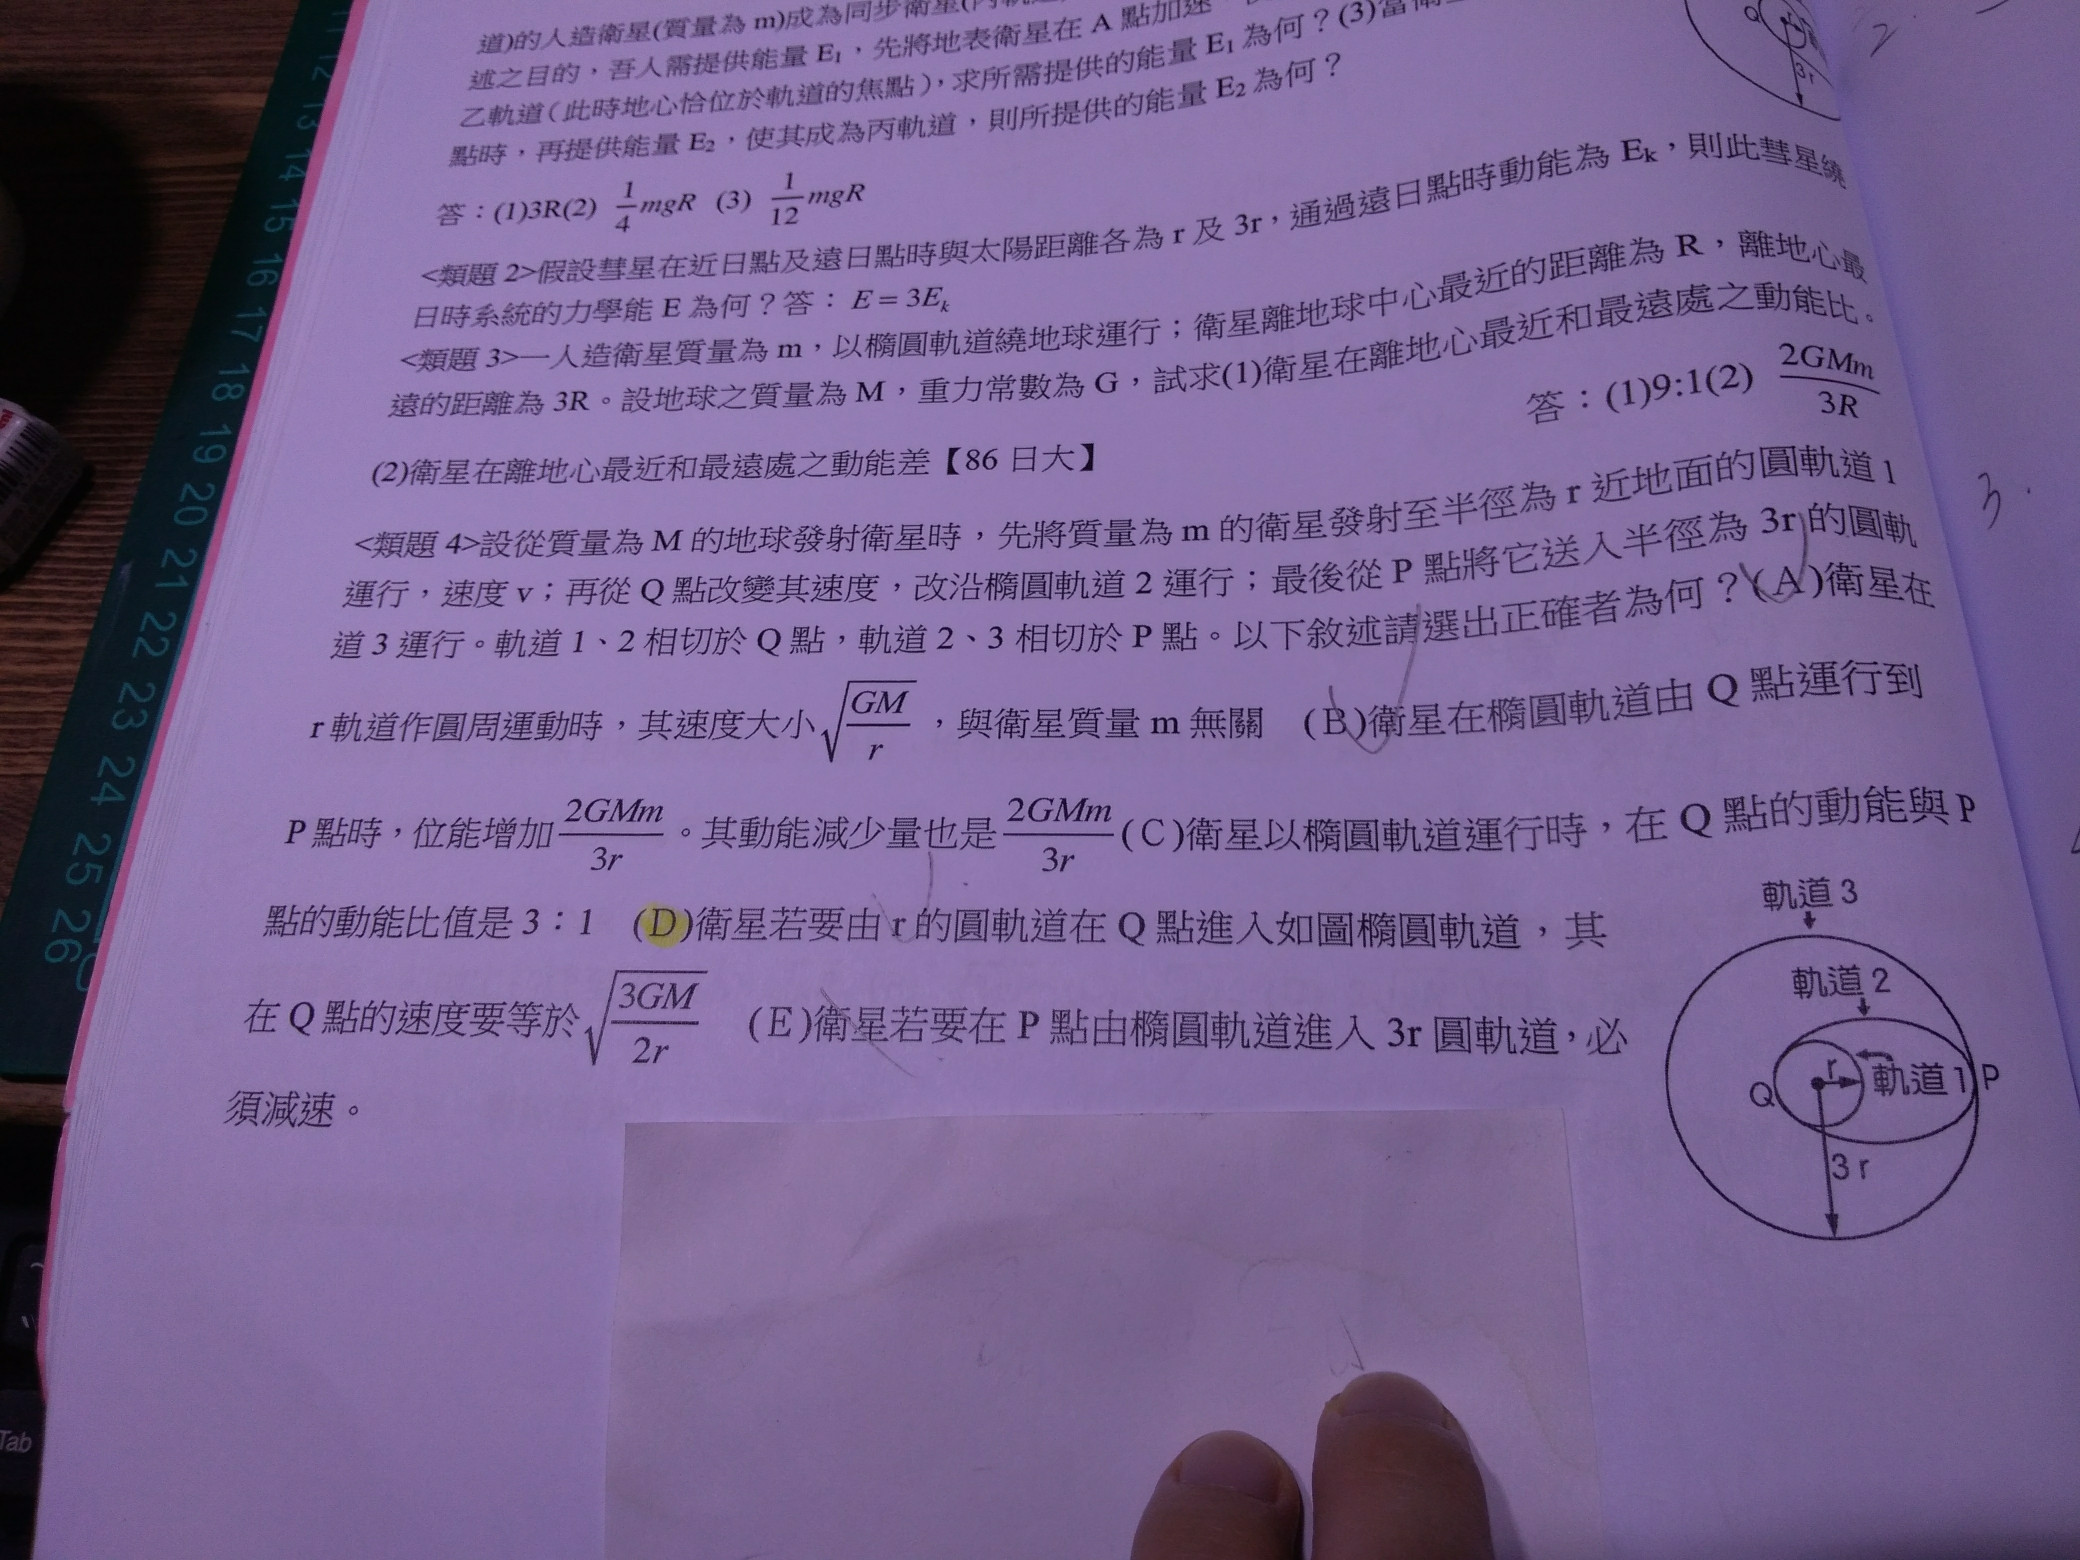 道)的人造衛星(質量為 m)成為同步衛星
述之目的，吾人需提供能量 E₁，先將地表衛星在 A 點加速
乙軌道(此時地心恰位於軌道的焦點)，求所需提供的能量 E₁ 為何？(3)當衛
點時，再提供能量 E₂，使其成為丙軌道，則所提供的能量 E₂ 為何？
答：(1)3R(2) 1/4 mgR (3) 1/12 mgR
<類題 2>假設彗星在近日點及遠日點時與太陽距離各為 r 及 3r，通過遠日點時動能為 Eₖ，則此彗星繞
日時系統的力學能 E 為何？答： E = 3Eₖ
<類題 3>一人造衛星質量為 m，以橢圓軌道繞地球運行；衛星離地球中心最近的距離為 R，離地心最
遠的距離為 3R。設地球之質量為 M，重力常數為 G，試求(1)衛星在離地心最近和最遠處之動能比。
(2)衛星在離地心最近和最遠處之動能差【86 日大】
答：(1)9:1(2) 2GMm/3R
<類題 4>設從質量為 M 的地球發射衛星時，先將質量為 m 的衛星發射至半徑為 r 近地面的圓軌道 1
運行，速度 v；再從 Q 點改變其速度，改沿橢圓軌道 2 運行；最後從 P 點將它送入半徑為 3r 的圓軌
道 3 運行。軌道 1、2 相切於 Q 點，軌道 2、3 相切於 P 點。以下敘述請選出正確者為何？(A)衛星在
r 軌道作圓周運動時，其速度大小 √(GM/r)，與衛星質量 m 無關 (B)衛星在橢圓軌道由 Q 點運行到
P 點時，位能增加 2GMm/3r。其動能減少量也是 2GMm/3r (C)衛星以橢圓軌道運行時，在 Q 點的動能與 P
點的動能比值是 3：1 (D)衛星若要由 r 的圓軌道在 Q 點進入如圖橢圓軌道，其
在 Q 點的速度要等於 √(3GM/2r) (E)衛星若要在 P 點由橢圓軌道進入 3r 圓軌道，必
須減速。
軌道 3
軌道 2
r
軌道 1
P
Q
3 r
Q
3r
2
3.
12 13 14 15 16 17 18 19 20 21 22 23 24 25 26
Tab